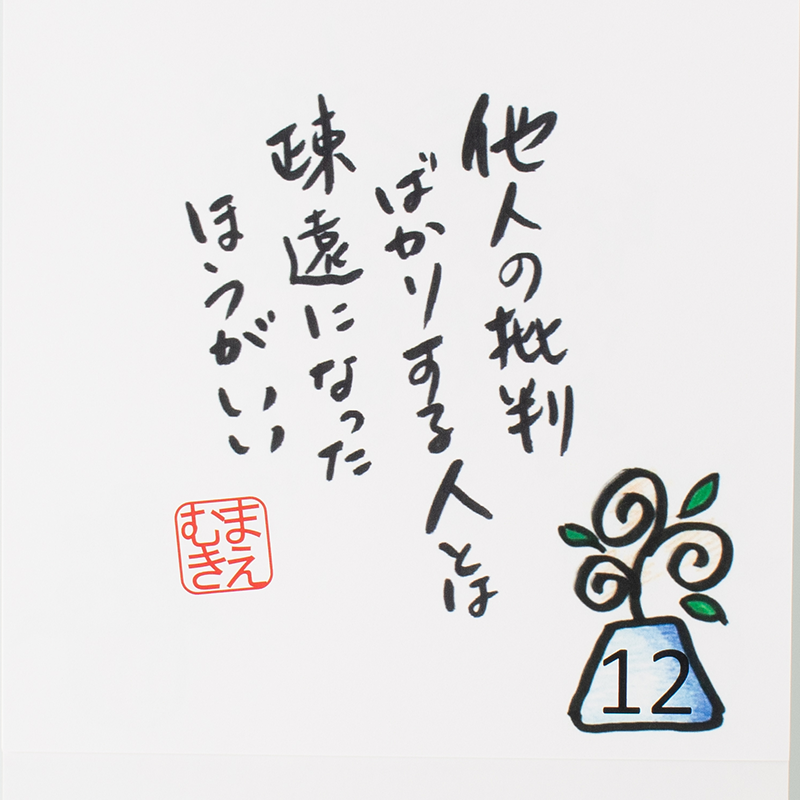 他人の批判
ばかりする人とは
疎遠になった
ほうがいい
まえ
むき
12